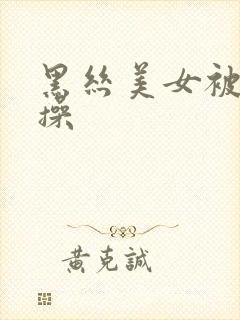 黑絲美女被
操
黃克誠